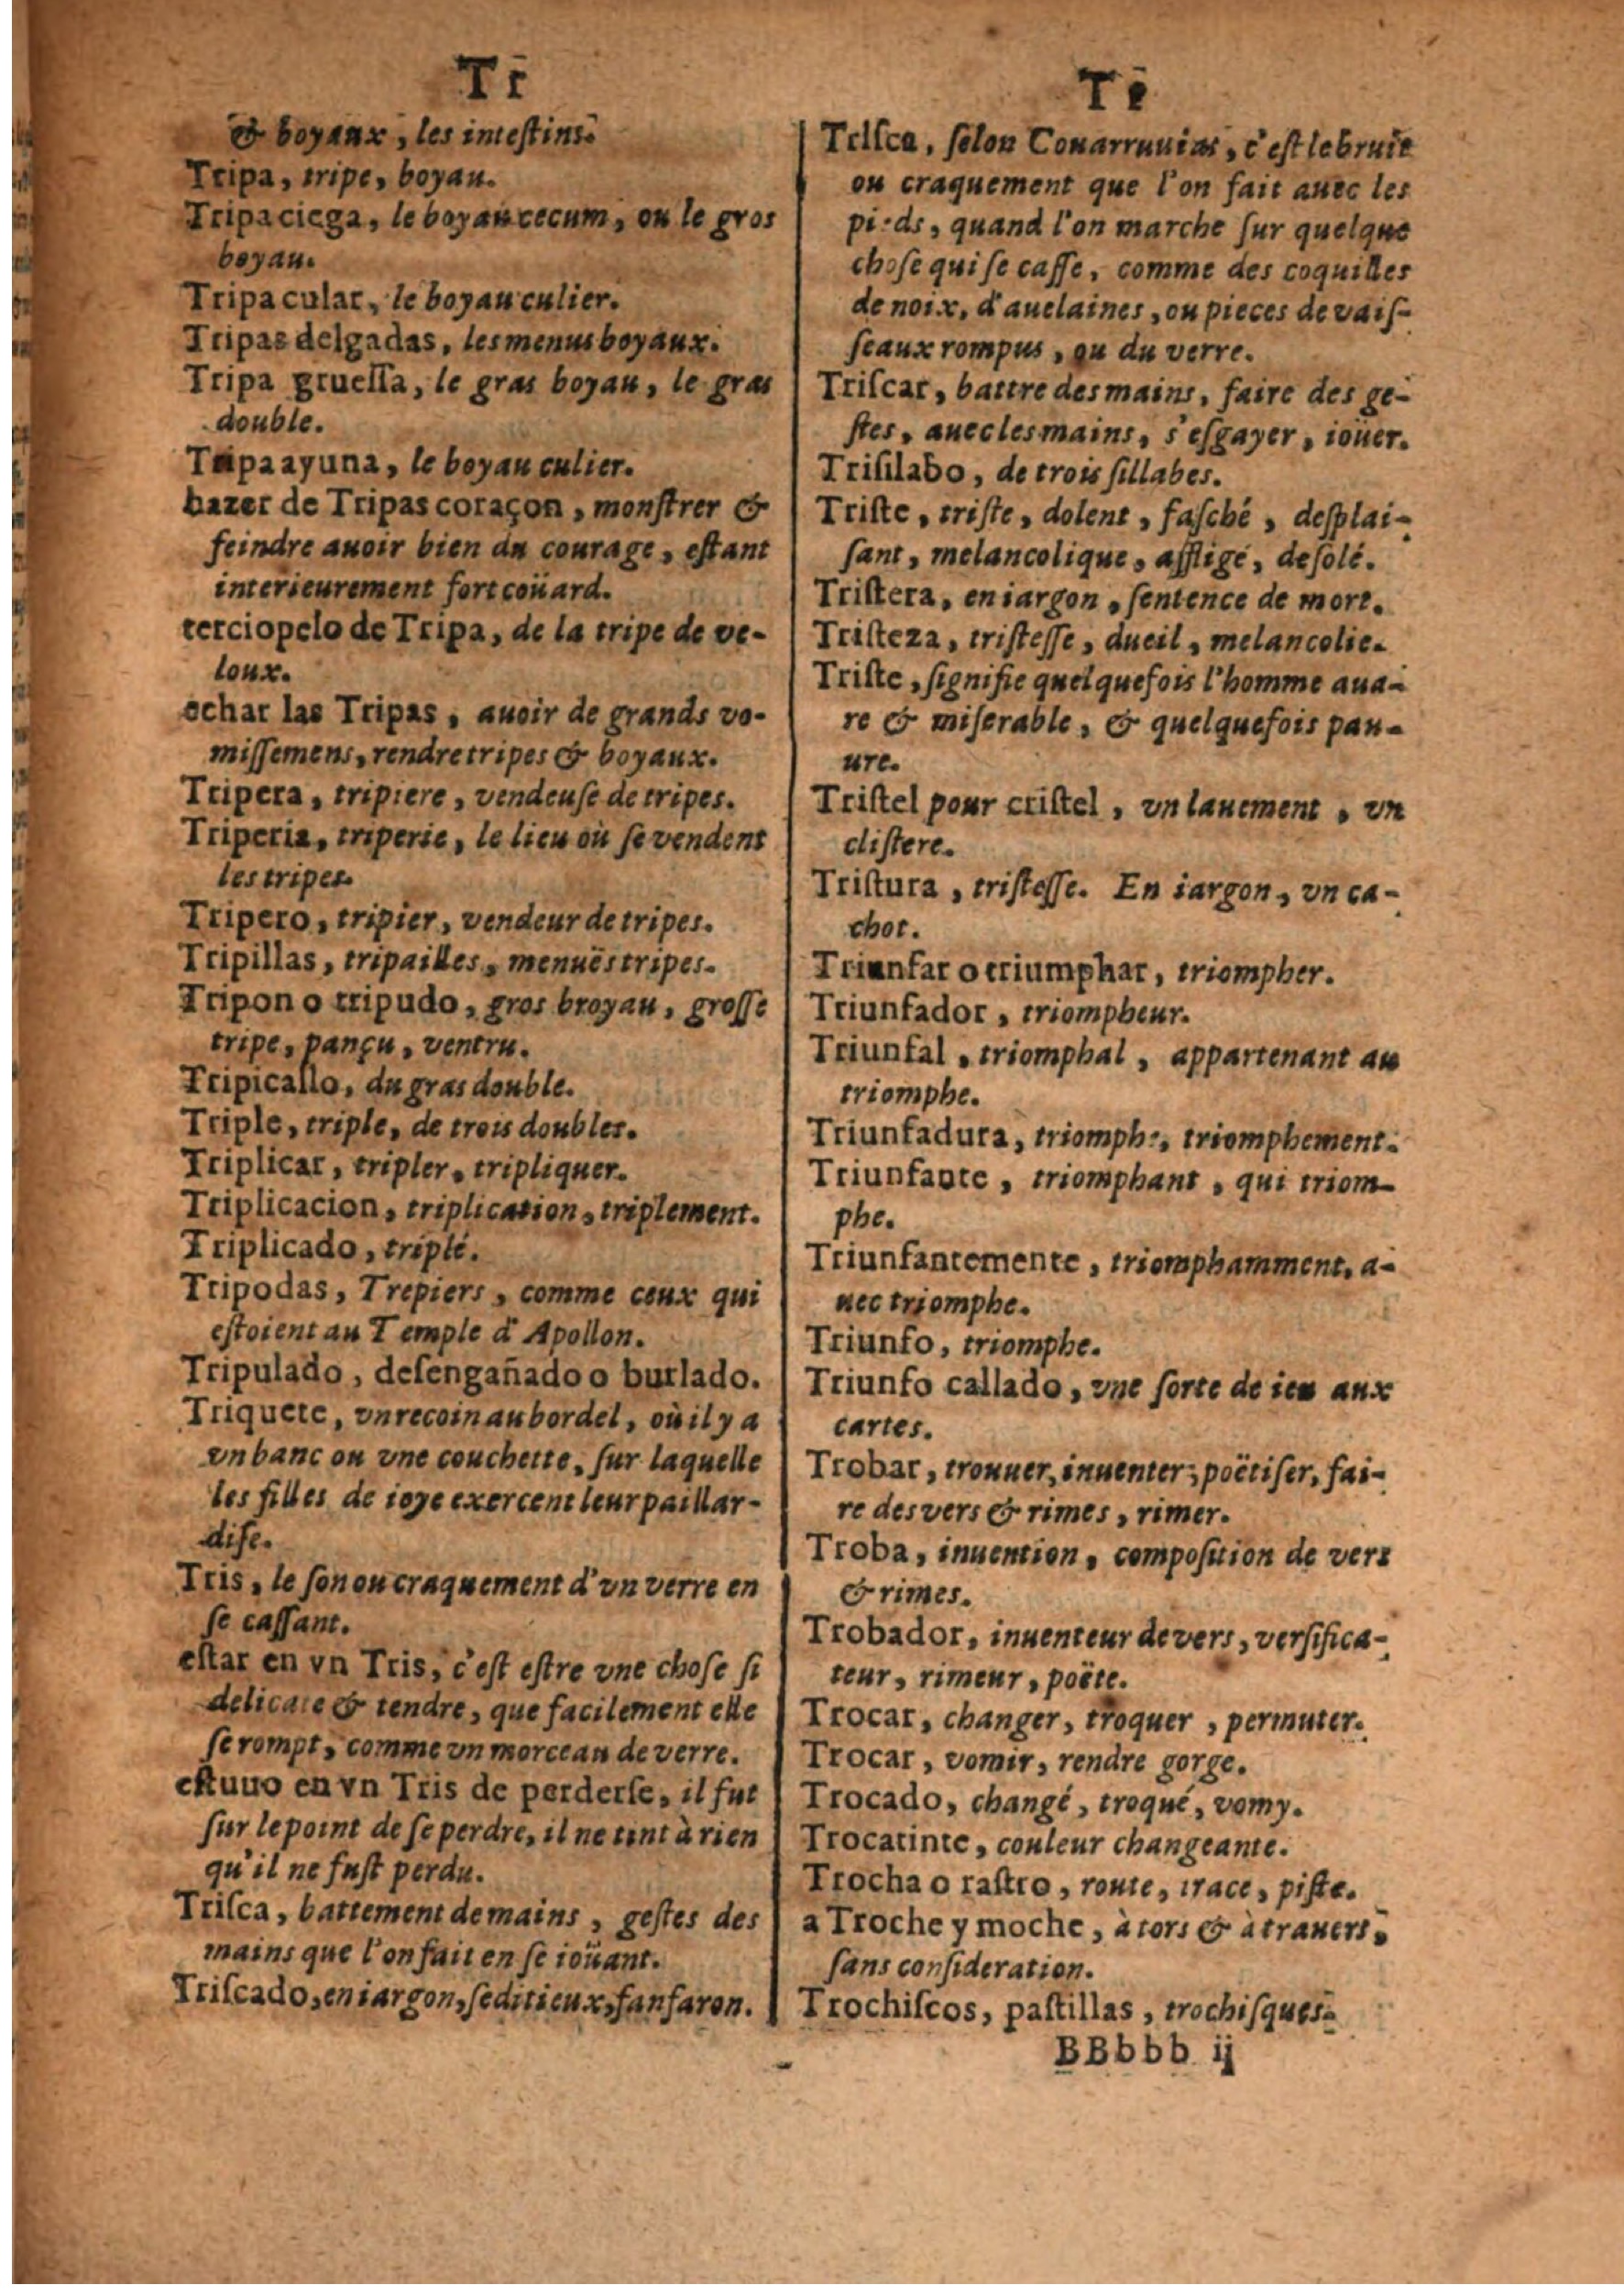 Tr
& boyaux, les inteſtins.
Tripa, tripe, boyau.
Tripa ciega, le boyau cecum, ou le gros
boyau.
Tripa cular, le boyau culier.
Tripas delgadas, les menus boyaux.
Tripa grueſſa, le gras boyau, le gras
double.
Tripa ayuna, le boyau culier.
hazer de Tripas coraçon, monſtrer &
feindre auoir bien du courage, eſtant
interieurement fort coüard.
terciopelo de Tripa, de la tripe de ve-
loux.
echar las Tripas, auoir de grands vo-
miſſemens, rendre tripes & boyaux.
Tripera, tripiere, vendeuſe de tripes.
Triperia, triperie, le lieu où ſe vendent
les tripes.
Tripero, tripier, vendeur de tripes.
Tripillas, tripailles, menuës tripes.
Tripon o tripudo, gros broyau, groſſe
tripe, pançu, ventru.
Tripicallo, du gras double.
Triple, triple, de trois doubles.
Triplicar, tripler, tripliquer.
Triplicacion, triplication, triplement.
Triplicado, triplé.
Tripodas, Trepiers, comme ceux qui
eſtoient au Temple d'Apollon.
Tripulado, deſengañado o burlado.
Triquete, vn recoin au bordel, où il y a
vn banc ou vne couchette, ſur laquelle
les filles de ioye exercent leur paillar-
diſe.
Tris, le ſon ou craquement d'vn verre en
ſe caſſant.
eſtar en vn Tris, c'eſt eſtre vne choſe ſi
delicate & tendre, que facilement elle
ſe rompt, comme vn morceau de verre.
eſtuuo en vn Tris de perderſe, il fut
ſur le point de ſe perdre, il ne tint à rien
qu'il ne fuſt perdu.
Triſca, battement de mains, geſtes des
mains que l'on fait en ſe ioüant.
Triſcado, en iargon, ſeditieux, fanfaron.
Tr
Triſca, ſelon Couarruuias, c'eſt le bruit
ou craquement que l'on fait auec les
pieds, quand l'on marche ſur quelque
choſe qui ſe caſſe, comme des coquilles
de noix, d'auelaines, ou pieces de vaiſ-
ſeaux rompus, ou du verre.
Triſcar, battre des mains, faire des ge-
ſtes, auec les mains, s'eſgayer, ioüer.
Triſilabo, de trois ſillabes.
Triſte, triſte, dolent, faſché, deſplai-
ſant, melancolique, affligé, deſolé.
Triſtera, en iargon, ſentence de mort.
Triſteza, triſteſſe, dueil, melancolie.
Triſte, ſignifie quelquefois l'homme aua-
re & miſerable, & quelquefois pau-
ure.
Triſtel pour criſtel, vn lauement, vn
cliſtere.
Triſtura, triſteſſe. En iargon, vn ca-
chot.
Triunfar o triumphar, triompher.
Triunfador, triompheur.
Triunfal, triomphal, appartenant au
triomphe.
Triunfadura, triomphe, triomphement.
Triunfante, triomphant, qui triom-
phe.
Triunfantemente, triomphamment, a-
uec triomphe.
Triunfo, triomphe.
Triunfo callado, vne ſorte de ieu aux
cartes.
Trobar, trouuer, inuenter, poëtiſer, fai-
re des vers & rimes, rimer.
Troba, inuention, compoſition de vers
& rimes.
Trobador, inuenteur de vers, verſifica-
teur, rimeur, poëte.
Trocar, changer, troquer, permuter.
Trocar, vomir, rendre gorge.
Trocado, changé, troqué, vomy.
Trocatinte, couleur changeante.
Trocha o raſtro, route, trace, piſte.
a Troche y moche, à tors & à trauers,
ſans conſideration.
Trochiſcos, paſtillas, trochiſques.
BBbbb ij